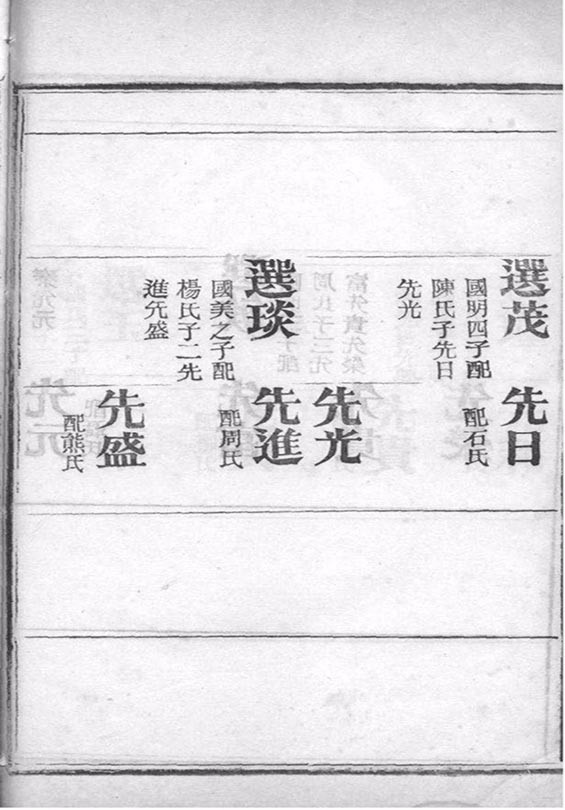 選茂
國明四子配
陳氏子先日
先光
先日
配石氏
先光
選琰
國美之子配
楊氏子二先
進先盛
先進
配周氏
先盛
配熊氏